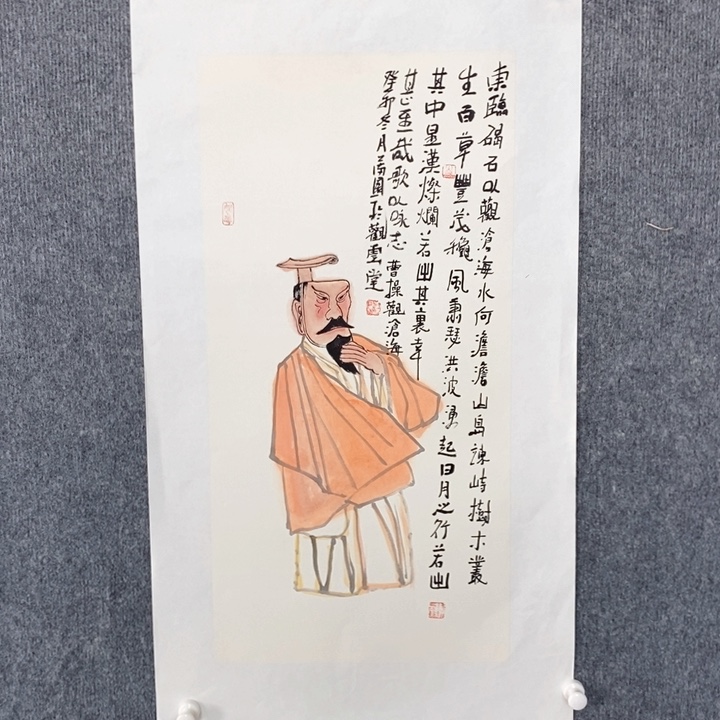 東臨碣石以觀滄海水何澹澹山島竦峙樹木叢
生百草豐茂穐風蕭瑟洪波涌起日月之行若出
其中星漢燦爛若出其裏幸
甚至哉歌以咏志 曹操觀滄海
癸卯冬月於觀雲堂